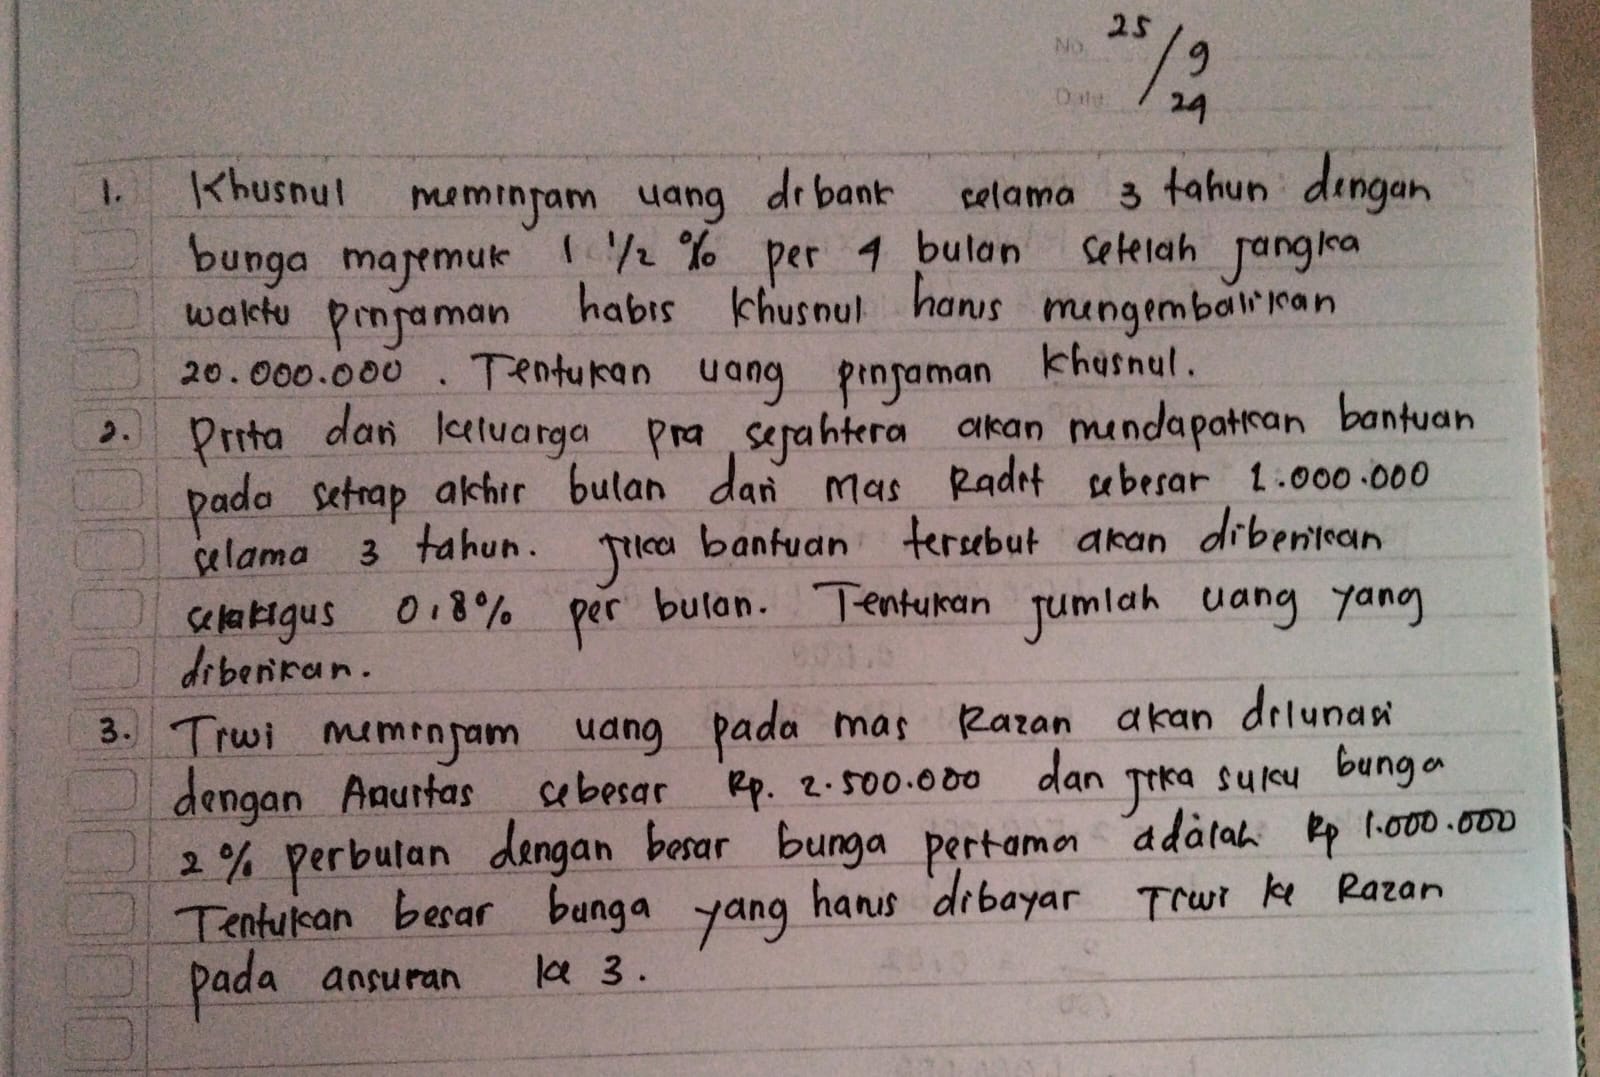 No. 25/9
Date 24
1. Khusnul meminjam uang di bank selama 3 tahun dengan
bunga majemuk 1 1/2 % per 4 bulan setelah jangka
waktu pinjaman habis Khusnul harus mengembalikan
20.000.000 . Tentukan uang pinjaman Khusnul.
2. Prita dari keluarga pra sejahtera akan mendapatkan bantuan
pada setiap akhir bulan dari Mas Radit sebesar 1.000.000
selama 3 tahun. Jika bantuan tersebut akan diberikan
sekaligus 0,8% per bulan. Tentukan jumlah uang yang
diberikan.
3. Tiwi meminjam uang pada mas Razan akan dilunasi
dengan Anuitas sebesar Rp. 2.500.000 dan jika suku bunga
2 % perbulan dengan besar bunga pertama adalah Rp 1.000.000
Tentukan besar bunga yang harus dibayar Tiwi ke Razan
pada ansuran ke 3.